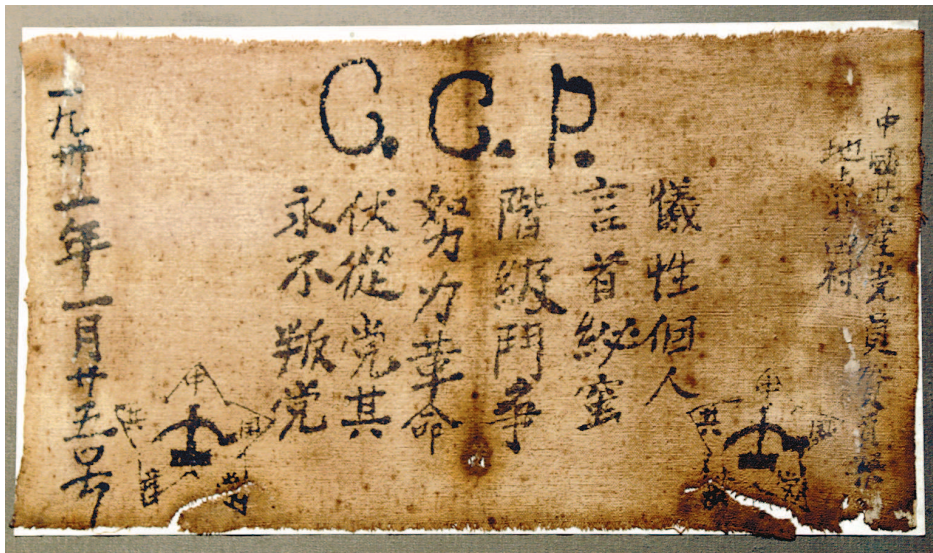 C.C.P.
中國共產党員
地点北田村
儀性個人
言首秘蜜
階級鬥争
努力革命
伏從党其
永不叛党
一九卅一年一月廿五日号
中國共產党
中國共產党